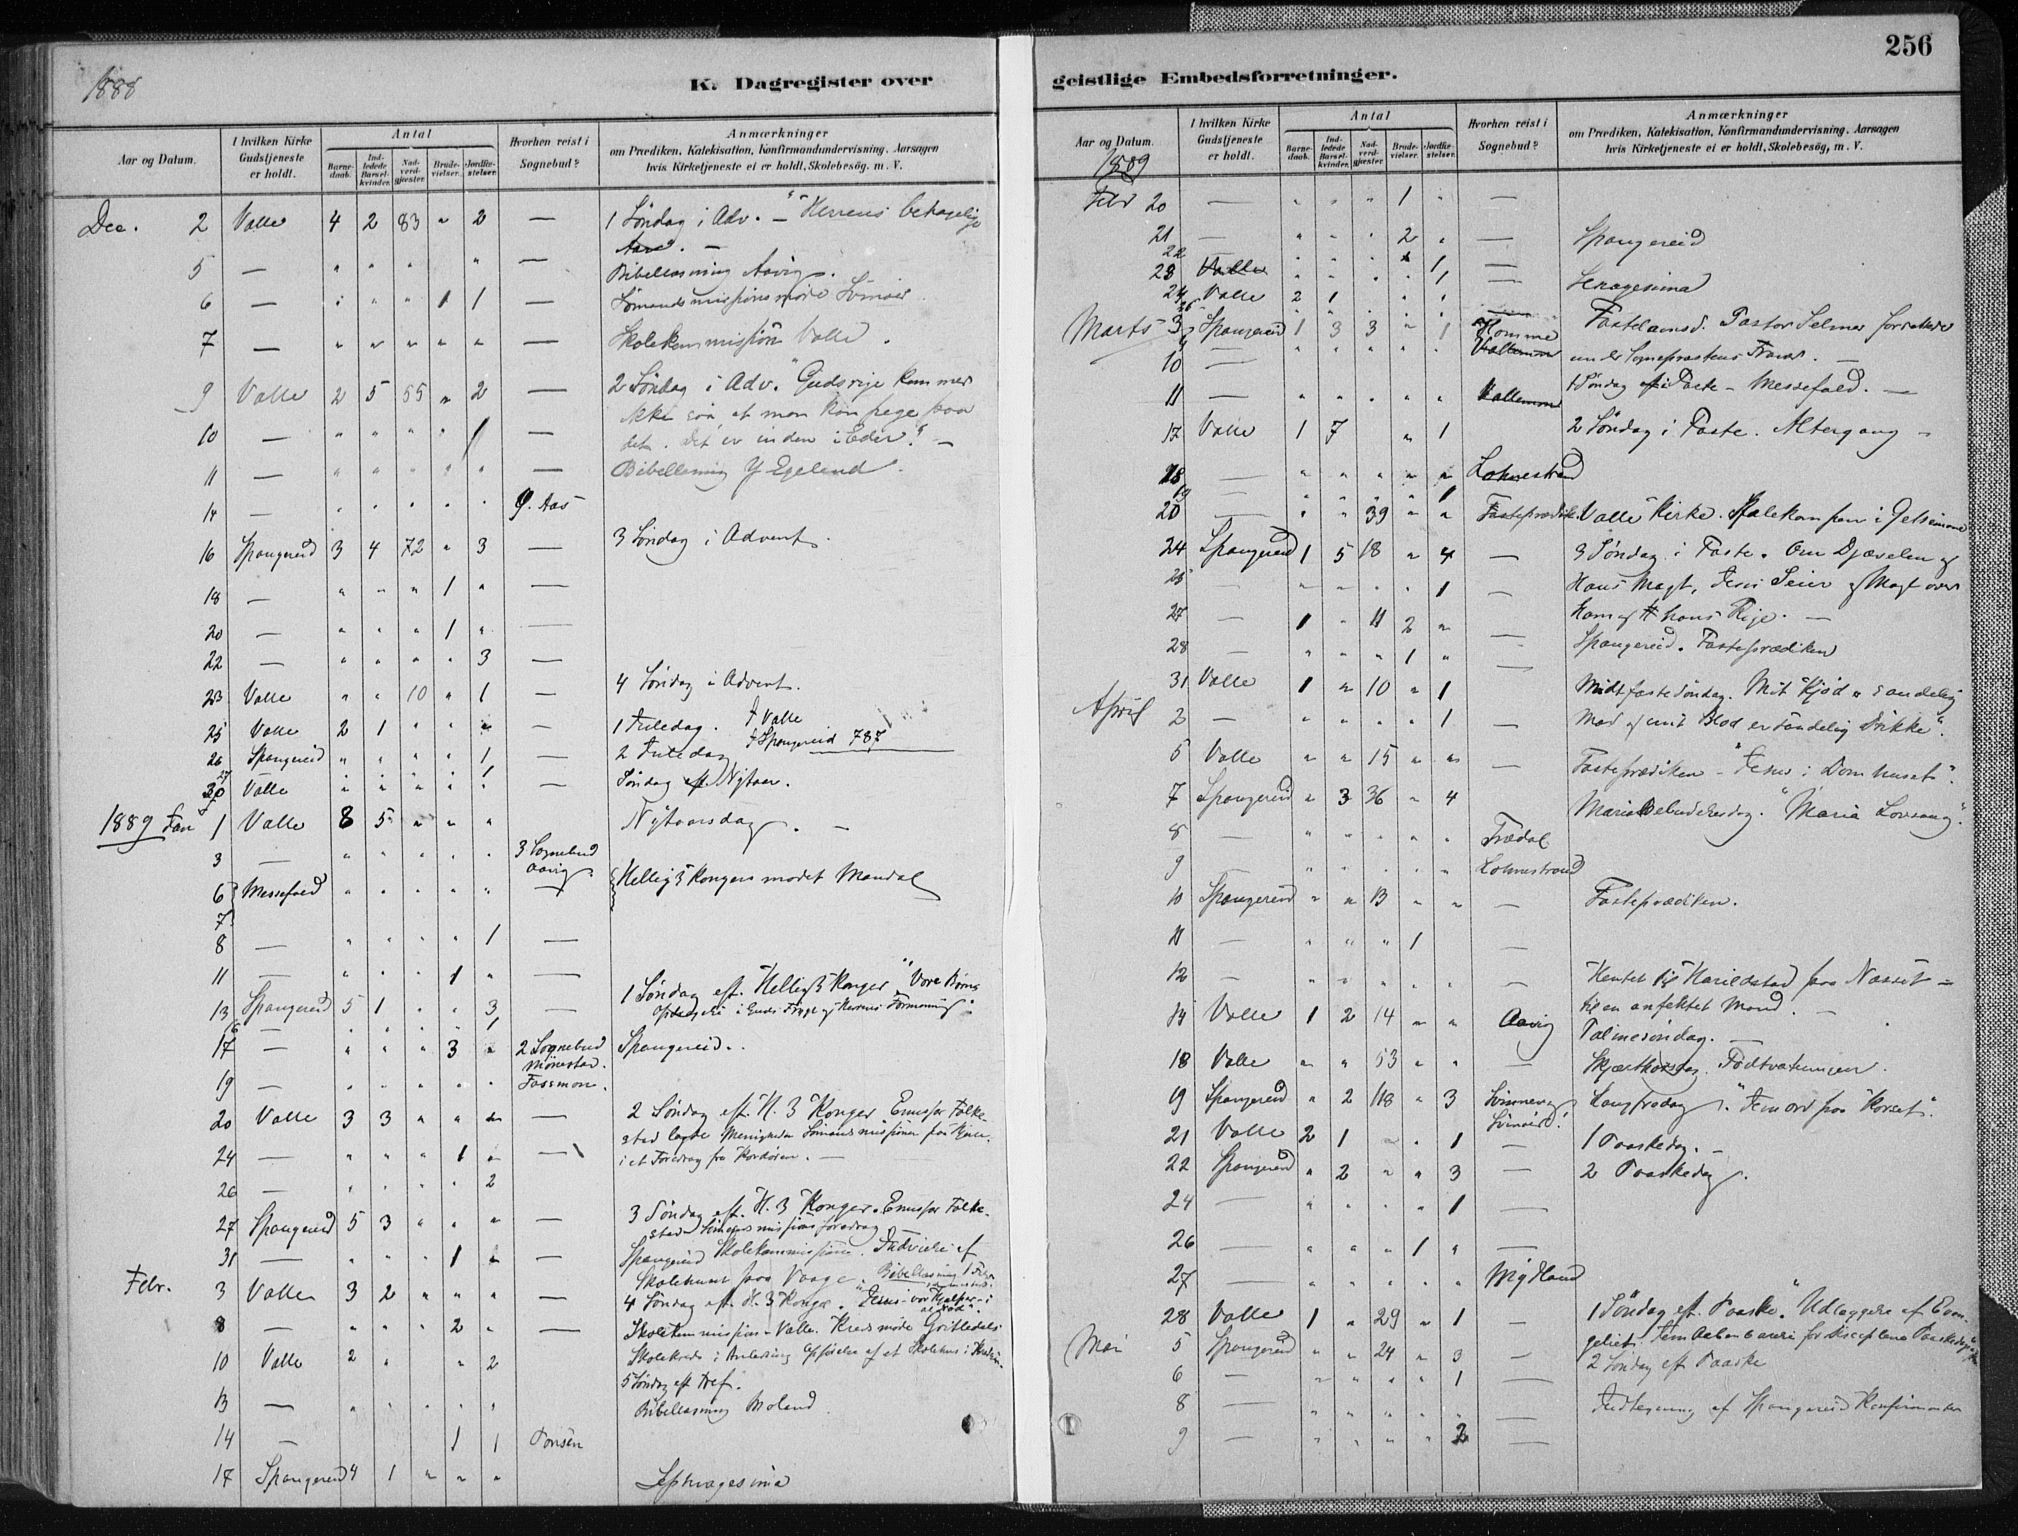 1888
K. Dagregister over
Aar og Datum.
I hvilken Kirke Gudstjeneste er holdt.
Antal
Barnedaab.
Indledede Barselkvinder.
Nadverdgjæster.
Brudevielser.
Jordfæstelser.
Hvorhen reist i Sognebud?
Anmærkninger
om Prædiken, Katekisation, Konfirmandundervisning, Aarsagen
hvis Kirketjeneste ei er holdt, Skolebesög, m. V.
Dec. 2 Valle 4 2 83 " 2 — 1 Söndag i Adv. — "Herrens behagelige
Aar". —
5 — " " " " " — Bibellæsning Aavig.
6 — " " " 1 1 Sömandsmissionsmöde Svinöer.
7 — " " " " " Skolekommission Valle.
9 Valle 2 5 55 " 2 — 2 Söndag i Adv. "Guds rige kommer
ikke saa, at man kan pege paa
10 — " " " " 1 — det. Det er inden i Eder". —
11 — " " " " " — Bibellæsning Y. Egeland.
14 — " " " " " Y. Aas
16 Spangereid 3 4 72 " 3 — 3 Söndag i Advent.
18 — " " " 1 " —
20 — " " " 1 " —
22 — " " " " 3 —
23 Valle " " 10 " 1 — 4 Söndag i Advent.
25 Valle 2 1 " " " — 1 Juledag. f Valle
26 Spangereid " " " " 1 — 2 Juledag f Spangereid 787
27 1
30 Valle " " " " " — Söndag eft. Nytaar.
1889 Jan 1 Valle 8 5 " " " Nytaarsdag. —
3 — " " " " " 3 Sognebud
Aavig.
6 Messefald " " " " " — Hellig 3 Kongers mödet Mandal
7
8 — " " " " 1 —
11 — " " " 1 " —
13 Spangereid 5 1 " " 3 — 1 Söndag eft. Hellig 3 Konger "Vore Börns
i Guds Frygt og Herrens Formaning".
16 — " " " " 1
17 — " " " 3 " 2 Sognebud Spangereid.
Mönestad.
19 — " " " " " Fossmon.
20 Valle 3 3 " " " — 2 Söndag eft. H. 3 Konger. Emissær Folkestad
lagde Menigheden Sömandsmissionen paa Hjerte
24 — " " " 1 " — i et Foredrag fra Kordören. —
26 — " " " " 2
27 Spangereid 5 3 " " " — 3 Söndag eft. H. 3 Konger. Emissær Folkestad
Sömandsmissionsforedrag
31 — " " " 1 " — Spangereid Skolekommission. Indvielse af
Skolehuset paa Vaage. Bibellæsning
Febr. 3 Valle 3 2 " " " — 4 Söndag eft. H. 3 Konge. "Jesus vor Hjælper i
al Nöd".
8 — " " " 2 " — Skolekommission Valle. Kredsmöde
10 Valle 2 " " " 2 Skolekreds i Anledning Opförelse af et Skolehus i Kredsen
5 Söndag eft. Tref.
13 — " " " " " Bibellæsning Moland
14 — 1 1
17 Spangereid 4 1 " " " Septuagesima

256
geistlige Embedsforretninger.
Aar og Datum.
I hvilken Kirke Gudstjeneste er holdt.
Antal
Barnedaab.
Indledede Barselkvinder.
Nadverdgjæster.
Brudevielser.
Jordfæstelser.
Hvorhen reist i Sognebud?
Anmærkninger
om Prædiken, Katekisation, Konfirmandundervisning, Aarsagen
hvis Kirketjeneste ei er holdt, Skolebesög, m. V.
1889
Febr 20 — " " " 1 " —
21 — " " " 2 " — Spangereid
22 1
23 Valle " " " " 1 —
24 Valle 2 1 " " " — Sexagesima
26
Marts 3 Spangereid 1 3 3 " 1 Homme Fastelavnsd. Pastor Selmer forrettede
4 Vallemoe under Sognepræstens Fravær. —
10 — " " " " " 1 Söndag i Faste — Messefald. —
11 — " " " " " Vallemoe
17 Valle 1 7 " 1 2 Söndag i Faste. Altergang —
18 — " " " " " Lohnestrand
19 — " " " " 1
20 " " 39 " " Fasteprædiken. Valle Kirke. Sjælekampen i Getsemane
24 Spangereid 1 5 18 " 4 — 3 Söndag i Faste. Om Djævelen og
25 — " " " " 1 Hans Magt, Jesu Seier og Magt over
27 — 1 " 11 2 " — ham og hans Rige. —
28 — " " " 1 " — Spangereid. Fasteprædiken
31 Valle 1 " 10 " 1 Midtfaste Söndag. "Mit Kjöd er sandelig
April 2 — " " " " 1 — Mad og mit Blod er sandelig Drikke".
5 Valle " " 15 " " — Fasteprædiken — "Jesus i Domhuset".
7 Spangereid " 3 36 " 4 Mariæ Bebudelsesdag. "Maria Lovsang".
8 — " " " " " Trædal
9 — " " " " " Lohnestrand
10 Spangereid " " 13 " " — Fasteprædiken.
11 — " " " 1 —
12 — " " " " " — Hentet til Harildstad paa Næsset —
til en anfektet Mand. —
14 Valle 1 2 14 " " Aavig Palmesöndag. —
18 Valle " " 53 " " Skjærthorsdag. Födtvætningen.
19 Spangereid " 2 118 " 3 Svinnevig Langfredag. "Jesu ord paa Korset".
Svinöer.
21 Valle 2 1 " " 1 — 1 Paaskedag. —
22 Spangereid " 2 " " 3 — 2 Paaskedag.
24 — " " " " 1 —
26 — " " " 1 " —
27 — " " " " " Mydland
28 Valle 1 " 29 " 1 — 1 Söndag eft. Paaske. "Udlæggelse af Evangeliet.
Jesu Aabenbarelse for Disciplene Paaskedags
Mai 5 Spangereid " " 24 " 3 — 2 Söndag eft Paaske
6 — " " " " 1 —
8 " " " " " — Indtegning af Spangereid Konfirmanter
9 — " " " " 2 —